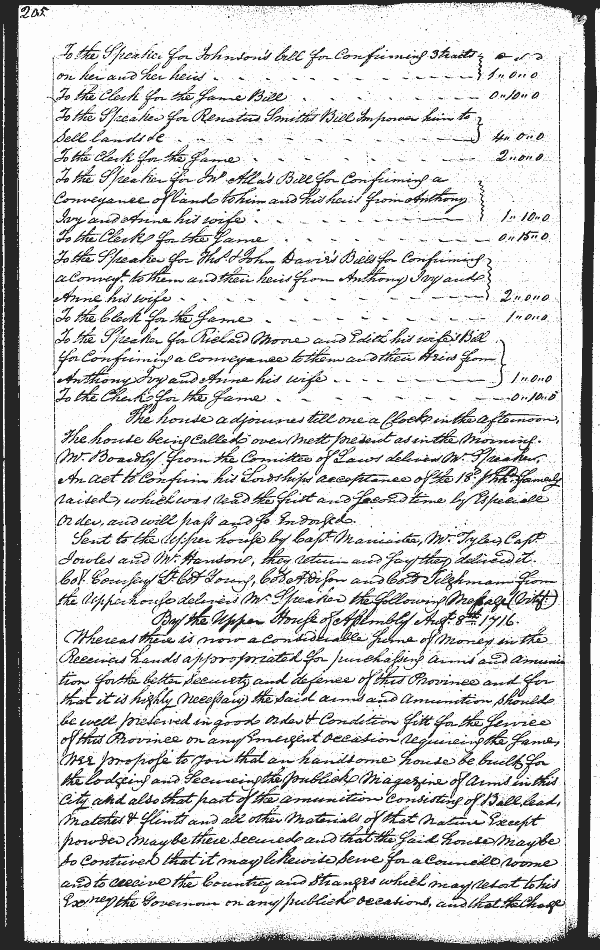 205
To the Speaker for Johnson's bill for Confirming 3 tracts
on her and her heirs - - - 1"0"0
To the Clerk for the Same Bill - - - 0"10"0
To the Speaker for Renatus Smiths Bill Impower him to
Sell lands &c - - - 4"0"0
To the Clerk for the Same - - - 2"0"0
To the Speaker for Bill for Confirming a
Conveyance of land to him and his heirs from Anthony
Ivy and Anne his wife - - - 1"10"0
To the Clerk for the Same - - - 0"15"0
To the Speaker for Thos & John Davis's Bills for Confirming
a Convey.ce to them and their heirs from Anthony Ivy and
Anne his wife - - - 2"0"0
To the Clerk for the Same - - - 1"0"0
To the Speaker for Richard Moore and Edith his wife's Bill
for Confirming a Conveyance to them and their Heirs from
Anthony Ivy and Anne his wife - - - 1"0"0
To the Clerk for the Same - - - 0"10"0
The house adjournes till one a Clock in the afternoon.
The house being Called over mett present as in the morning.
Mr. Boardly from the Comittee of Laws delivers Mr. Speaker,
An act to Confirm his Lordships acceptance of the 18d Hhd. Same
raised, which was read the first and Second time by Especiall
order, and will pass and So Endorsed.
Sent to the Upper house by Capt. Mariarter, Mr. Tyler, Capt.
Jowles and Mr. Hanson, they return and Say they deliver'd it.
Col. Coursey Lt. Col Young, Col. Addison and Col. Tilghman from
the Upper house delivers Mr. Speaker the following Message (Vizt.)
By the Upper House of Assembly Augt. 8th. 1716.
Whereas there is now a considerable Sume of Money in the
Receivers hands appropriated for purchasing arms and amuni=
tion for the better Security and defence of this Province and for
that it is highly necessary the said arms and amunition should
be well preserved in good order & Condition fitt for the Service
of this Province on any Emergent occasion requireing the Same,
Wee propose to You that an handsome house be built for
the lodging and Secureing the publick Magazine of Arms in this
City and also that part of the amunition Consisting of Ball lead,
Matches & flints and all other Materials of that Nature Except
powder may be there secured and that the said house may be
so Contrived that it may likewise Serve for a Councill roome
and to receive the Country and Strangers which may resort to his
Exncy the Governour on any publick occasions, and that the Charge